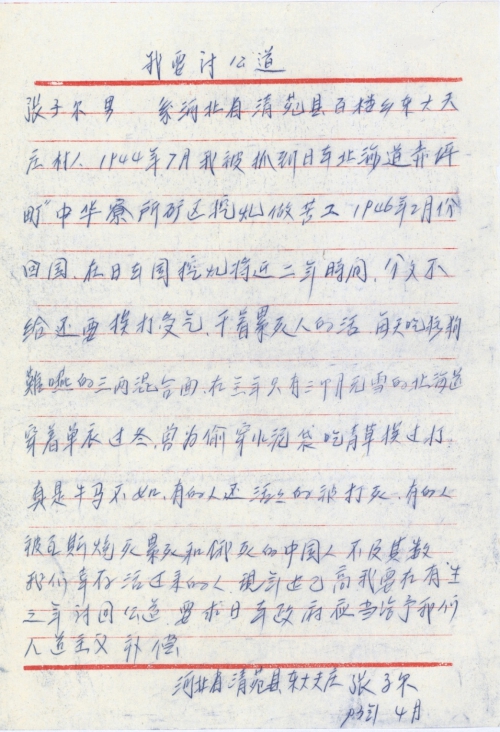 我要讨公道
张子尔 男 系河北省清苑县百楼乡东大夫
庄村人 1944年7月我被抓到日本北海道赤坪
町"中华寮所矿区挖煤做苦工 1946年2月份
回国、在日本国挖煤将近二年时间、分文不
给还要挨打受气、干着累死人的活 每天吃
难咽的三两混合面、在三年只有三个月无雪的北海道
穿着单衣过冬、曾为偷穿水泥袋吃青草挨过打、
真是牛马不如、有的人还活活的被打死、有的人
被瓦斯炮死累死和饿死的中国人不及其数
我们幸存活过来的人、现年迈已高我要在有生
之年讨回公道、要求日本政府应当给予我们
人道主义补偿
河北省清苑县东大夫庄 张子尔
4月